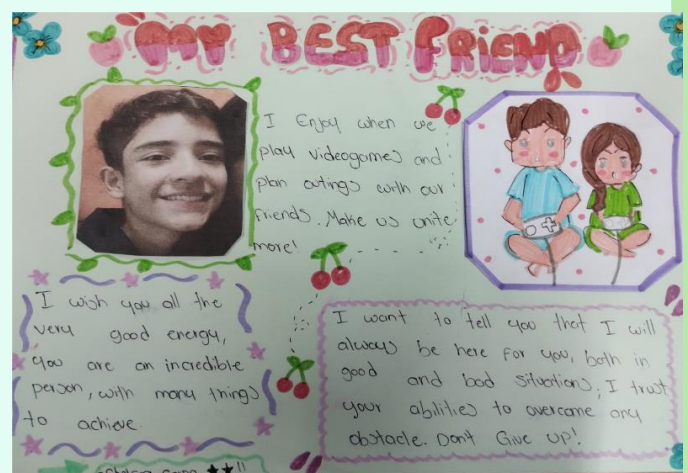 MY BEST FRIEND
I Enjoy when we
play videogames and
plan outings with our
friends. Make us unite
more!
I wish you all the
very good energy,
you are an incredible
person, with many things
to achieve.
I want to tell you that I will
always be here for you, both in
good and bad situations; I trust
your abilities to overcome any
obstacle. Don't Give up!